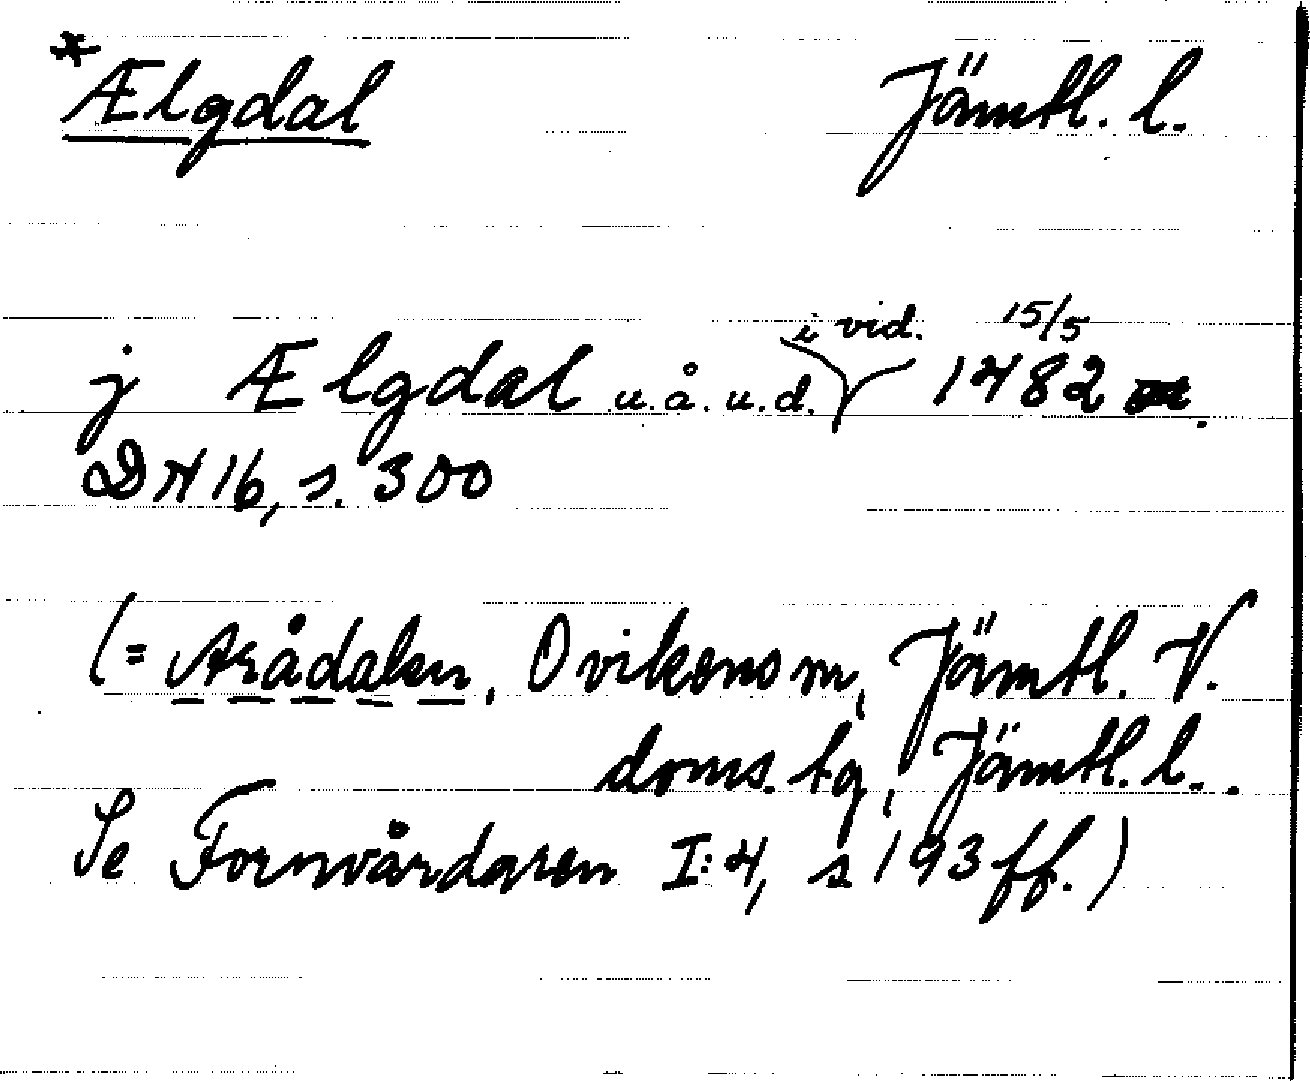 *Ælgdal Jämtl. l.
j Ælgdal u.å.u.d. i vid. 15/5 1482
DN 16, s. 300
(= Arådalen, Ovikens sn, Jämtl. V.
doms.tg, Jämtl. l..
Se Fornvårdaren I:4, s 193 ff.)